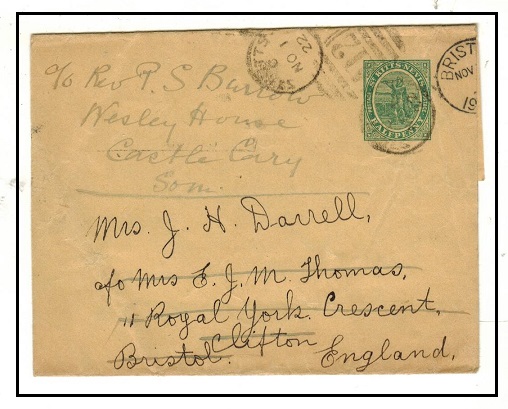 ST. KITTS-NEVIS
HALFPENNY
NO 1
22
BRIST
NOV
19
c/o Rev P. S Barrow
Wesley House
Castle Cary
Som.
Mrs. J. H. Darrell,
c/o Mrs E. J. M. Thomas,
11 Royal York. Crescent,
Clifton
Bristol. England,